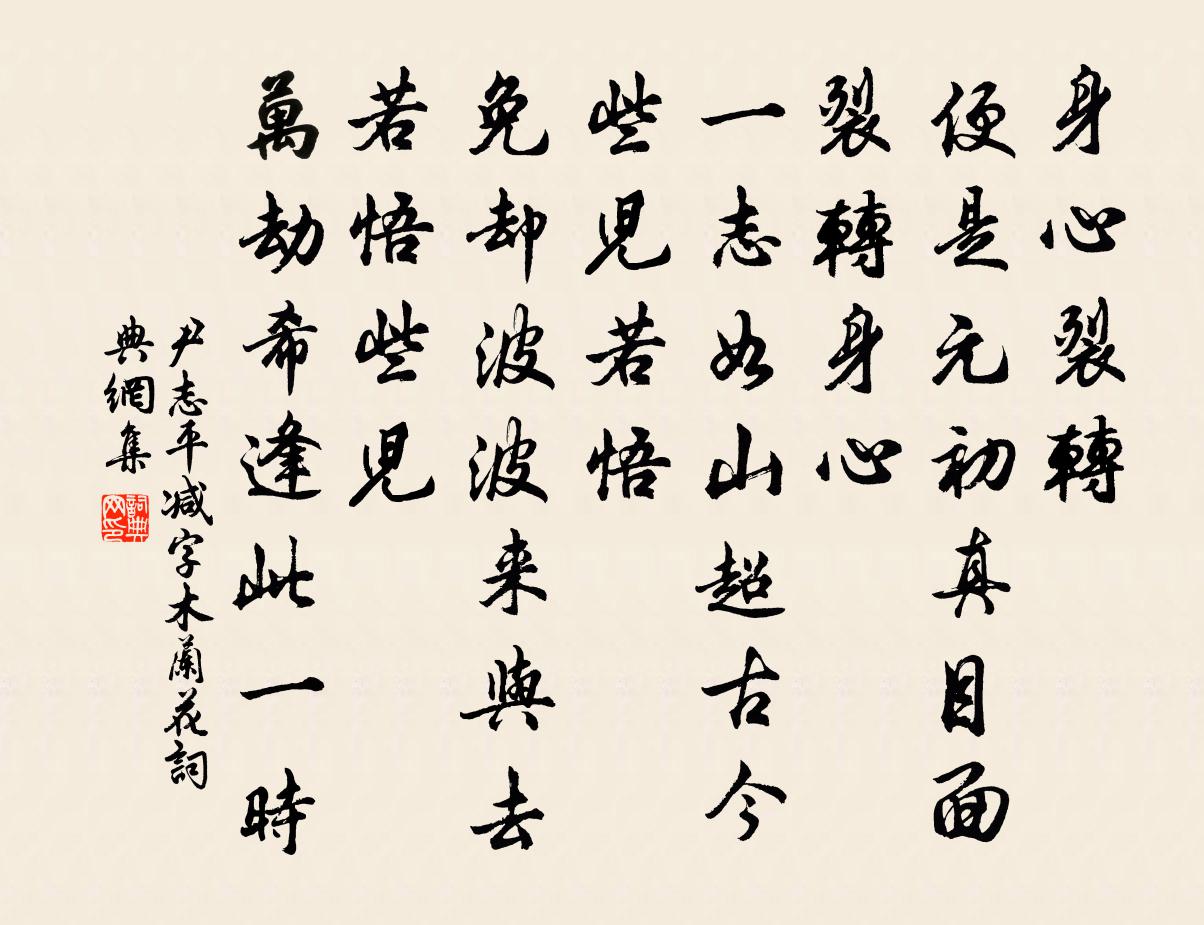 身心裂轉
便是元初真目面
裂轉身心
一志如山超古今
些兒若悟
免却波波来與去
若悟些兒
萬劫希逢此一時
尹志平减字木蘭花詞
典網集
詞典
网印